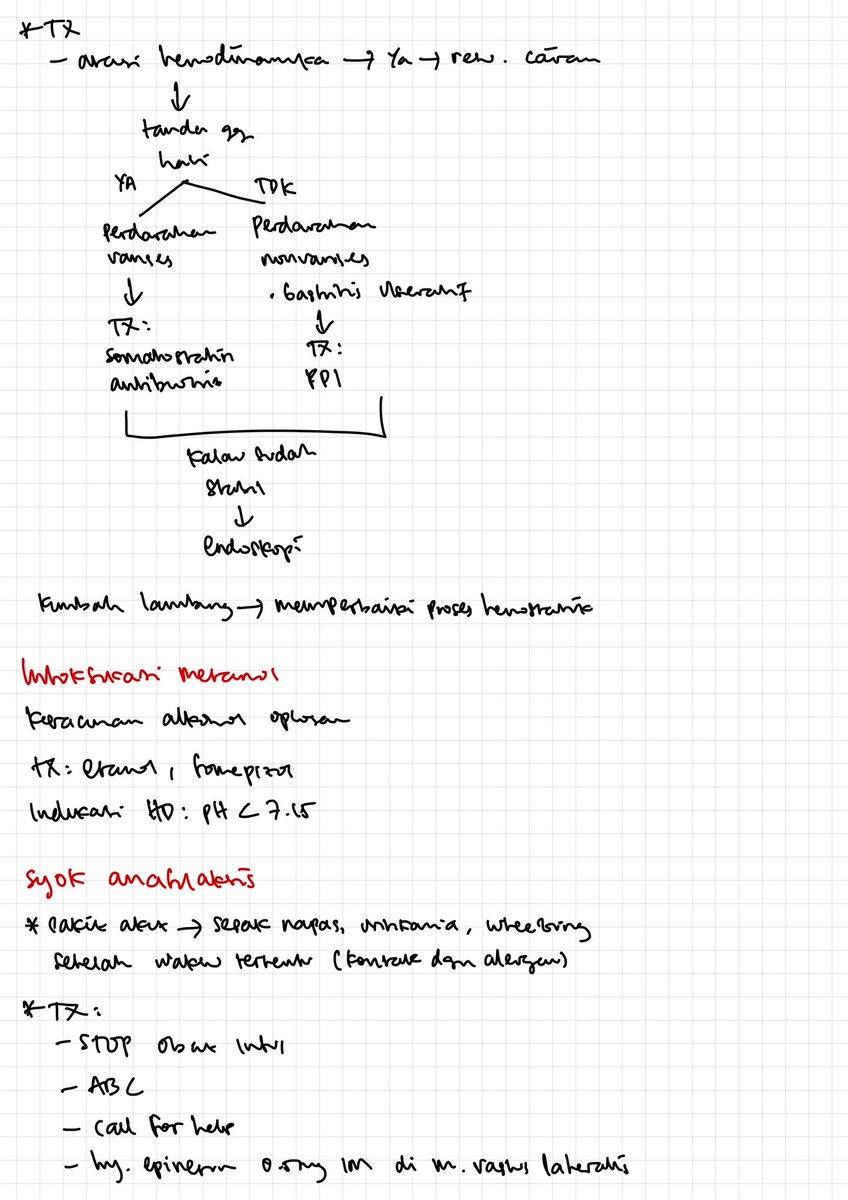 * TX
- atasi hemodinamika → Ya → res. cairan
↓
tanda gg
hati
YA TDK
Perdarahan Perdarahan
varises nonvarises
↓ . Gastritis Ulseratif
TX: ↓
somatostatin TX:
antibiotik PPI
Kalau sudah
stabil
↓
endoskopi
Kumbah lambung → memperbaiki proses hemostatik
Intoksikasi metanol
Keracunan alkohol oplosan
tx: etanol, fomepizol
Indikasi HD: pH < 7.15
Syok anafilaksis
* akut → sesak napas, urtikaria, wheezing
setelah waktu tertentu (kontak dgn alergen)
* TX:
- STOP obat
- ABC
- Call for help
- Inj. epinefrin 0.5mg IM di m. vastus lateralis